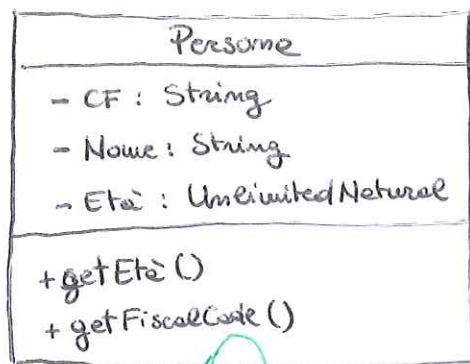 Persona
- CF : String
- Nome : String
- Età : UnlimitedNatural
+ getEtà ()
+ getFiscalCode ()